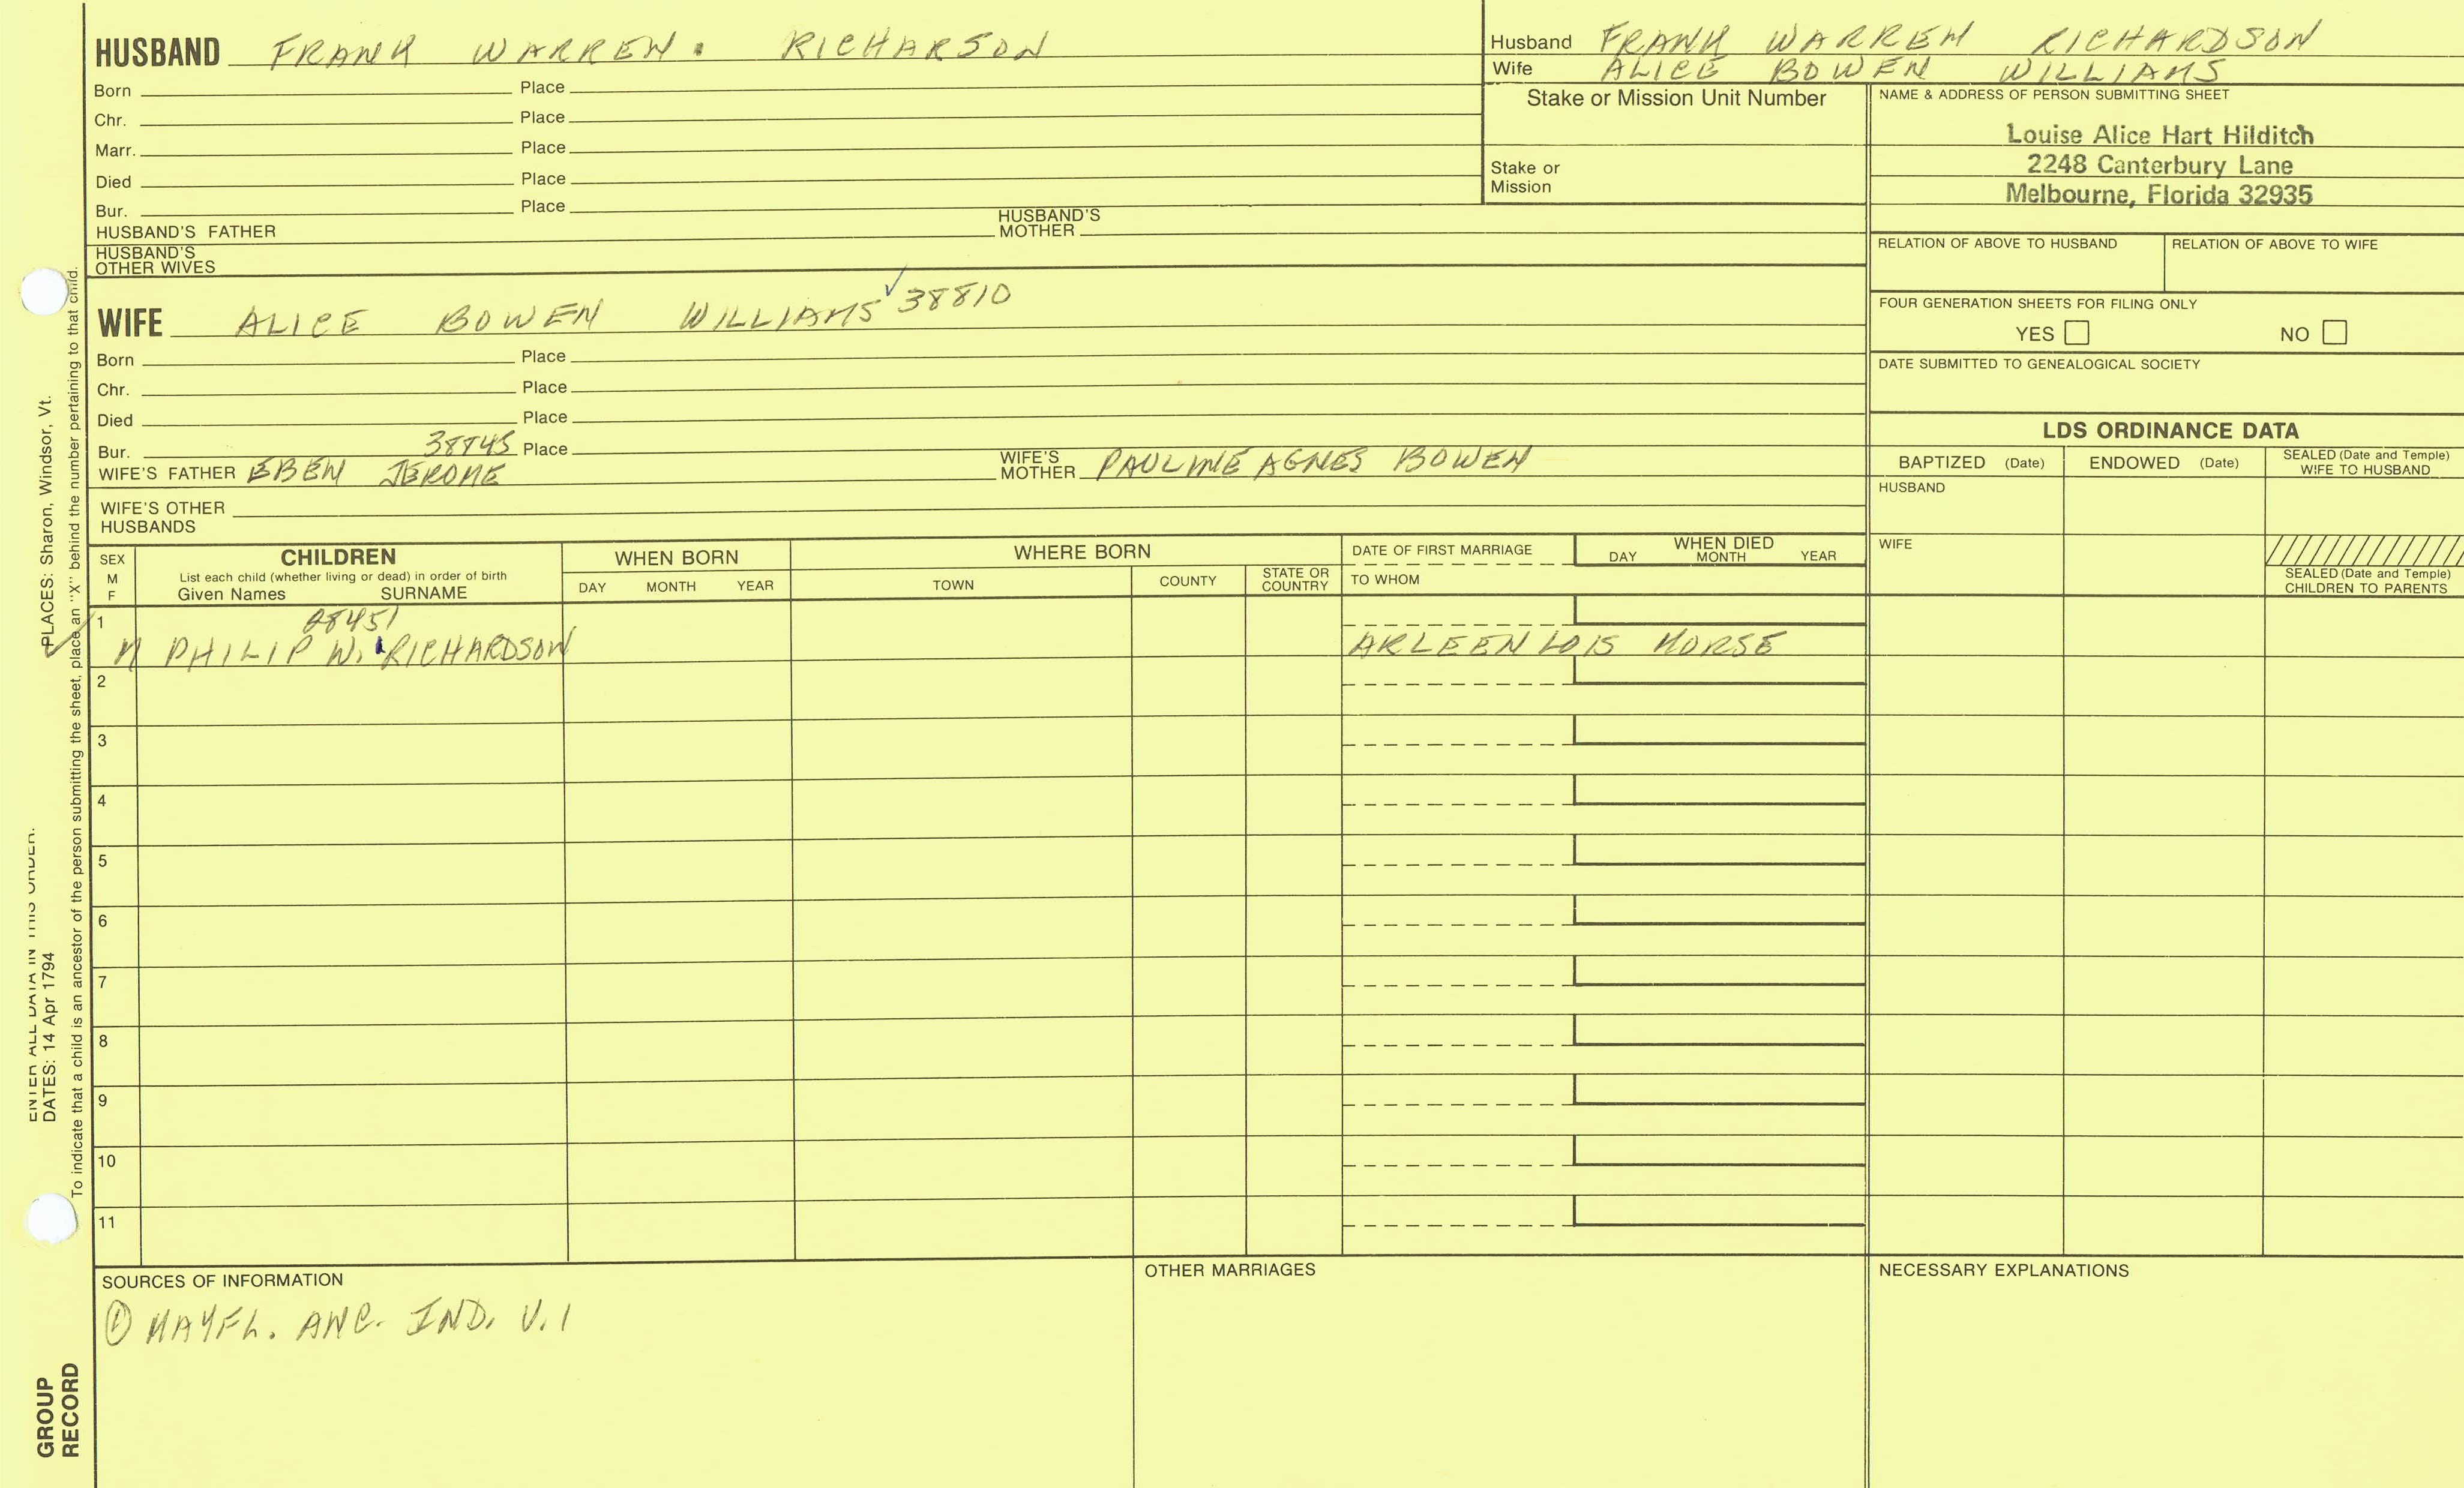 HUSBAND FRANK WARREN. RICHARSON
Born Place
Chr. Place
Marr. Place
Died Place
Bur. Place
HUSBAND'S FATHER HUSBAND'S MOTHER
HUSBAND'S OTHER WIVES
WIFE ALICE BOWEN WILLIAMS ✓ 38810
Born Place
Chr. Place
Died Place
Bur. 38845 Place
WIFE'S FATHER EBEN JEROME WIFE'S MOTHER PAULINE AGNES BOWEN
WIFE'S OTHER HUSBANDS
Husband FRANK WARREN RICHARDSON
Wife ALICE BOWEN WILLIAMS
Stake or Mission Unit Number
Stake or Mission
NAME & ADDRESS OF PERSON SUBMITTING SHEET
Louise Alice Hart Hilditch
2248 Canterbury Lane
Melbourne, Florida 32935
RELATION OF ABOVE TO HUSBAND RELATION OF ABOVE TO WIFE
FOUR GENERATION SHEETS FOR FILING ONLY
YES NO
DATE SUBMITTED TO GENEALOGICAL SOCIETY
LDS ORDINANCE DATA
BAPTIZED (Date) ENDOWED (Date) SEALED (Date and Temple) WIFE TO HUSBAND
HUSBAND
WIFE
SEALED (Date and Temple) CHILDREN TO PARENTS
SEX M F
CHILDREN
List each child (whether living or dead) in order of birth
Given Names SURNAME
WHEN BORN
DAY MONTH YEAR
WHERE BORN
TOWN COUNTY STATE OR COUNTRY
DATE OF FIRST MARRIAGE
TO WHOM
WHEN DIED
DAY MONTH YEAR
1 28451
M PHILIP W. RICHARDSON ARLEEN LOIS MORSE
2
3
4
5
6
7
8
9
10
11
SOURCES OF INFORMATION
① MAYFL. ANC. IND. V.1
OTHER MARRIAGES
NECESSARY EXPLANATIONS
ENTER ALL DATA IN THIS ORDER.
DATES: 14 Apr 1794 PLACES: Sharon, Windsor, Vt.
To indicate that a child is an ancestor of the person submitting the sheet, place an "X" behind the number pertaining to that child.
GROUP
RECORD